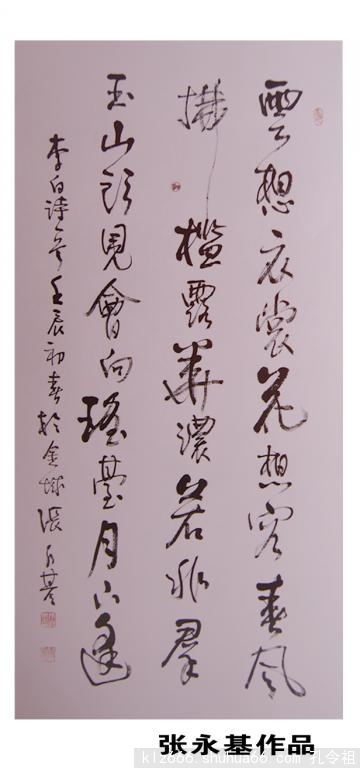 雲想衣裳花想容春風
拂檻露華濃若非群
玉山頭見會向瑤臺月下逢
李白詩 壬辰初春於金城張永基
张永基作品
klz666.shuhua66.com 孔令祖